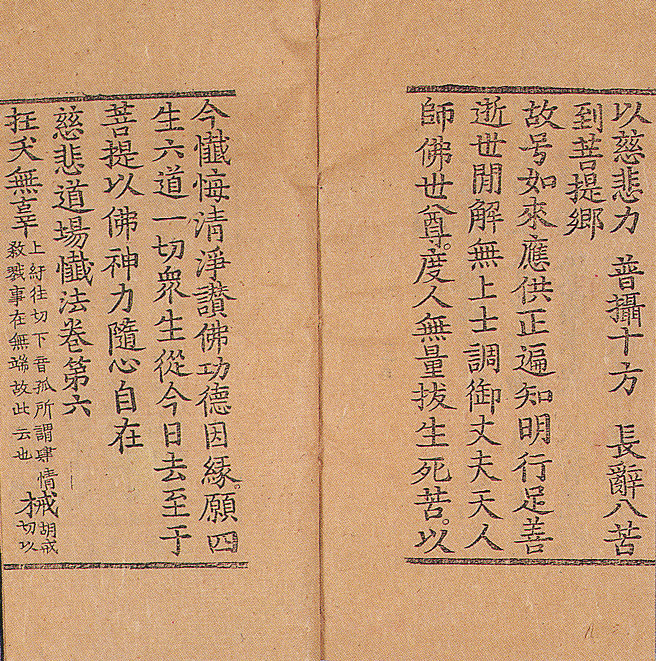 以慈悲力　普攝十方　長辭八苦
到菩提鄉
故号如來應供正遍知明行足善
逝世閒解無上士調御丈夫天人
師佛世尊。度人無量拔生死苦。以
今懺悔清淨讃佛功德因緣。願四
生六道一切衆生從今日去至于
菩提以佛神力隨心自在
慈悲道場懺法卷第六
抂夭無辜上紆往切下音孤所謂肆情殺戮事在無端故此云也械胡戒切以